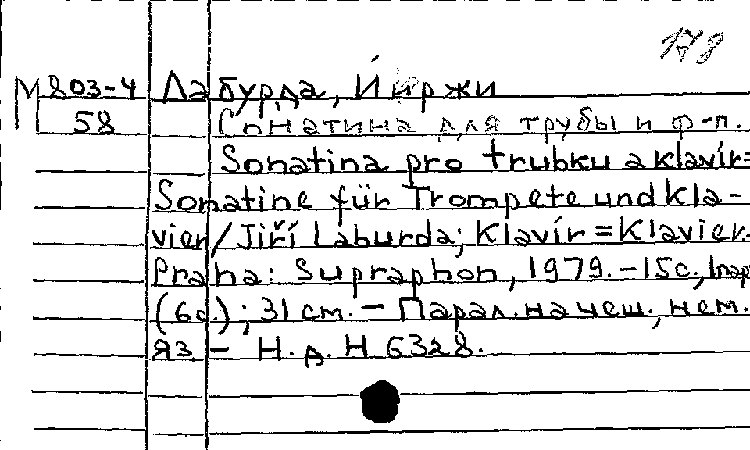 178
М 803-4 Лабурда, Йиржи
58 Сонатина для трубы и ф-п.
Sonatina pro trubku a klavír=
Sonatine für Trompete und Kla-
vier/Jiří Laburda; Klavír=Klavier.-
Praha: Supraphon, 1979.-15с.,1пар
(6с.); 31 см. - Парал. на чеш., нем.
яз. - Н.д. H 6328.